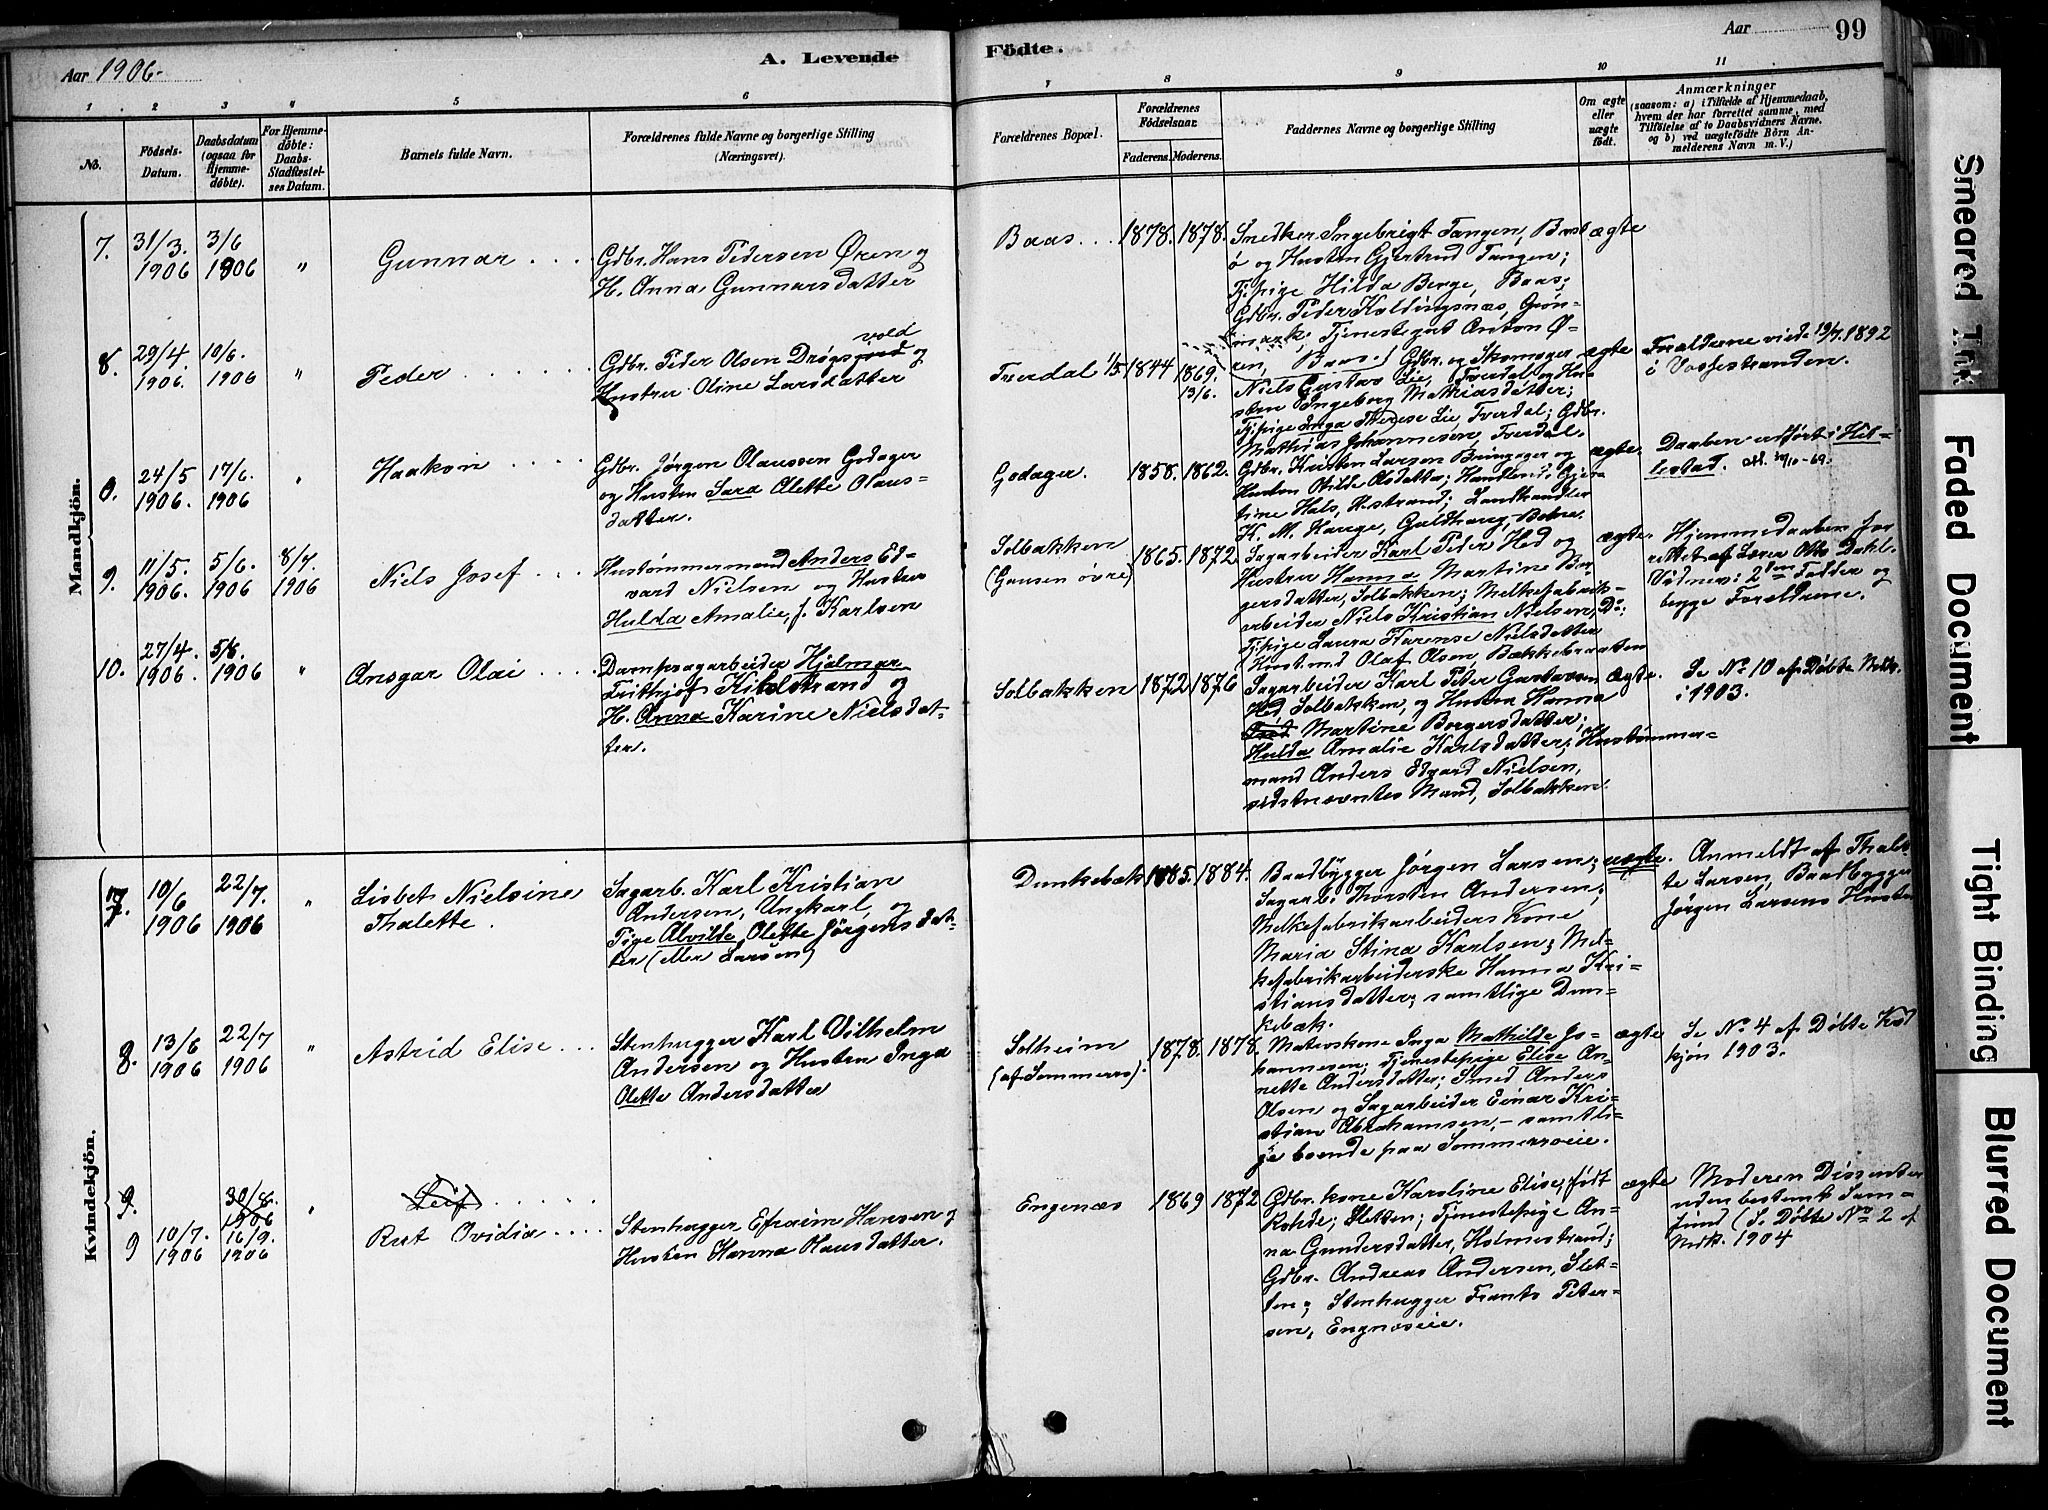 Aar 1906.
A. Levende
Födte.
Aar
99
1
2
3
4
5
6
7
8
9
10
11
No.
Födsels-
Datum.
Daabsdatum
(ogsaa for
Hjemme-
døbte).
For Hjemme-
døbte:
Daabs-
Stadfæstel-
ses Datum.
Barnets fulde Navn.
Forældrenes fulde Navne og borgerlige Stilling
(Næringsvei).
Forældrenes Bopæl.
Forældrenes
Födselsaar.
Faderens.
Moderens.
Faddernes Navne og borgerlige Stilling
Om ægte
eller
uægte
født.
Anmærkninger
(saasom: a) i Tilfælde af Hjemmedaab,
hvem der har forrettet samme, med
Tilföielse af to Daabsvidners Navne.
og b) ved uægtefödte Börn An-
melderens Navn m. V.)
Mandkjön.
7.
31/3.
1906
3/6
1906
"
Gunnar
Gdbr. Hans Pedersen Øren og
H. Anna Gunnarsdatter
Baas
1878.
1878.
Snedker Ingebrigt Tangen, Bast
ö og Hustru Gjertrud Tangen;
Tj.pige Hilda Berge, Baas;
Gdbr. Peder Kaldingsnæs, Grön-
mark; Tjenestegut Anton Ø-
ren, Baas.
ægte
8.
29/4.
1906.
10/6.
1906
"
Peder
vold
Gdbr. Peder Olsen Drøgs og
Hustru Oline Larsdatter
Tverdal
1/5 1844
1869.
13/6.
Gdbr. og Skomager
Niels Gustav Lie, Tverdal og Hu-
stru Ingeborg Mathiasdatter;
Tj.pige Inga Therese Lie, Tverdal; Gdbr.
Mathias Johannesen, Tverdal.
ægte
Forældrene viede 19/7. 1892
i Vosfjestranden.
24/5
1906.
17/6.
1906
"
Haakon
Gdbr. Jörgen Olaussen Godager
og Hustru Sara Olette Olaus-
datter.
Godager.
1858.
1862.
Gdbr. Kristen Larsen Bringager og
Hustru Otilde Olsdatter; Handlende Gjer-
tine Hals, H.strand; Landhandler
K. M. Hauge, Guldhaug, Botne.
ægte.
Daaben udført i Hil-
lestad.
9.
11/5.
1906.
5/6.
1906
8/7.
1906
Niels Josef
Hustömmermand Anders Ed-
vard Nielsen og Hustru
Hulda Amalie, f. Karlsen
Solbakken
(Gausen övre)
1865.
1872
Sagarbeider Karl Peder Hed og
Hustru Hanna Martine Bor-
gersdatter, Solbakken; Melkefabrik-
arbeider Niels Kristian Nielsen, Do;
Tj.pige Laura Karense Nielsdatter
Hust.md Olaf Olsen, Bækkebraaten
ægte.
Hjemmedaaben for-
rettet af Lærer Otto Dahl.
Vidner: 2den Fadder og
begge Forældrene.
10.
27/4.
1906.
5/8.
1906
"
Ansgar Olai
Dampsagarbeider Hjalmar
Frithjof Kihlstrand og
H. Anna Karine Nielsdat-
ter.
Solbakken
1872
1876
Sagarbeider Karl Peter Gustavsen
Hed, Solbakken, og Hustru Hanna
Martine Borgersdatter;
Hulda Amalie Karlsdatter; Hustömmer-
mand Anders Edvard Nielsen,
sidstnævntes Mand, Solbakken.
ægte.
Se No 10 af Døbte Mdk.
i 1903.
Kvindekjön.
7.
10/6
1906
22/7.
1906
"
Lisbet Nielsine
Thalette.
Sagarb. Karl Kristian
Andersen, Ungkarl, og
Pige Alvilde Olette Jörgensdat-
ter (eller Larsen)
Dunkebæk
1885.
1884.
Baadbygger Jörgen Larsen;
Sagarb. Thorsten Andersen;
Melkefabrikarbeiders Kone
Maria Stina Karlsen; Mel-
kefabrikarbeiderske Hanna Kri-
stiansdatter; samtlige Dun-
kebæk.
uægte.
Anmeldt af Thalet-
te Larsen, Baadbygger
Jörgen Larsens Hustru
8.
13/6
1906
22/7
1906
"
Astrid Elise
Stenhugger Karl Vilhelm
Andersen og Hustru Inga
Olette Andersdatter
Solheim
(af Sommerro).
1878.
1878.
Matroskone Inga Mathilde Jo-
hannesen; Tjenestepige Elise An-
nette Andersdatter; Smed Anders
Olsen og Sagarbeider Einar Kri-
stian Abrahamsen, - samtli-
ge boende paa Sommerroeie.
ægte
Se No 4 af Døbte Kvd
kjön 1903.
9.
30/8.
1906
"
Leif
9
10/7.
1906
16/9.
1906
Rut Ovidia
Stenhugger Efraim Hansen og
Hustru Hanna Olausdatter.
Engenæs
1869
1872
Gdbr.kone Karoline Elise, født
Rohde, Sletten; Tjenestepige An-
na Gundersdatter, Holmestrand;
Gdbr. Andreas Andersen, Slet-
ten; Stenhugger Frants Peter-
sen, Engnæseie.
ægte
Moderen Dissenter
uden bestemt Sam-
fund (Se Døbte No 2 af
Mdk. 1904
Smeared Ink
Faded Document
Tight Binding
Blurred Document